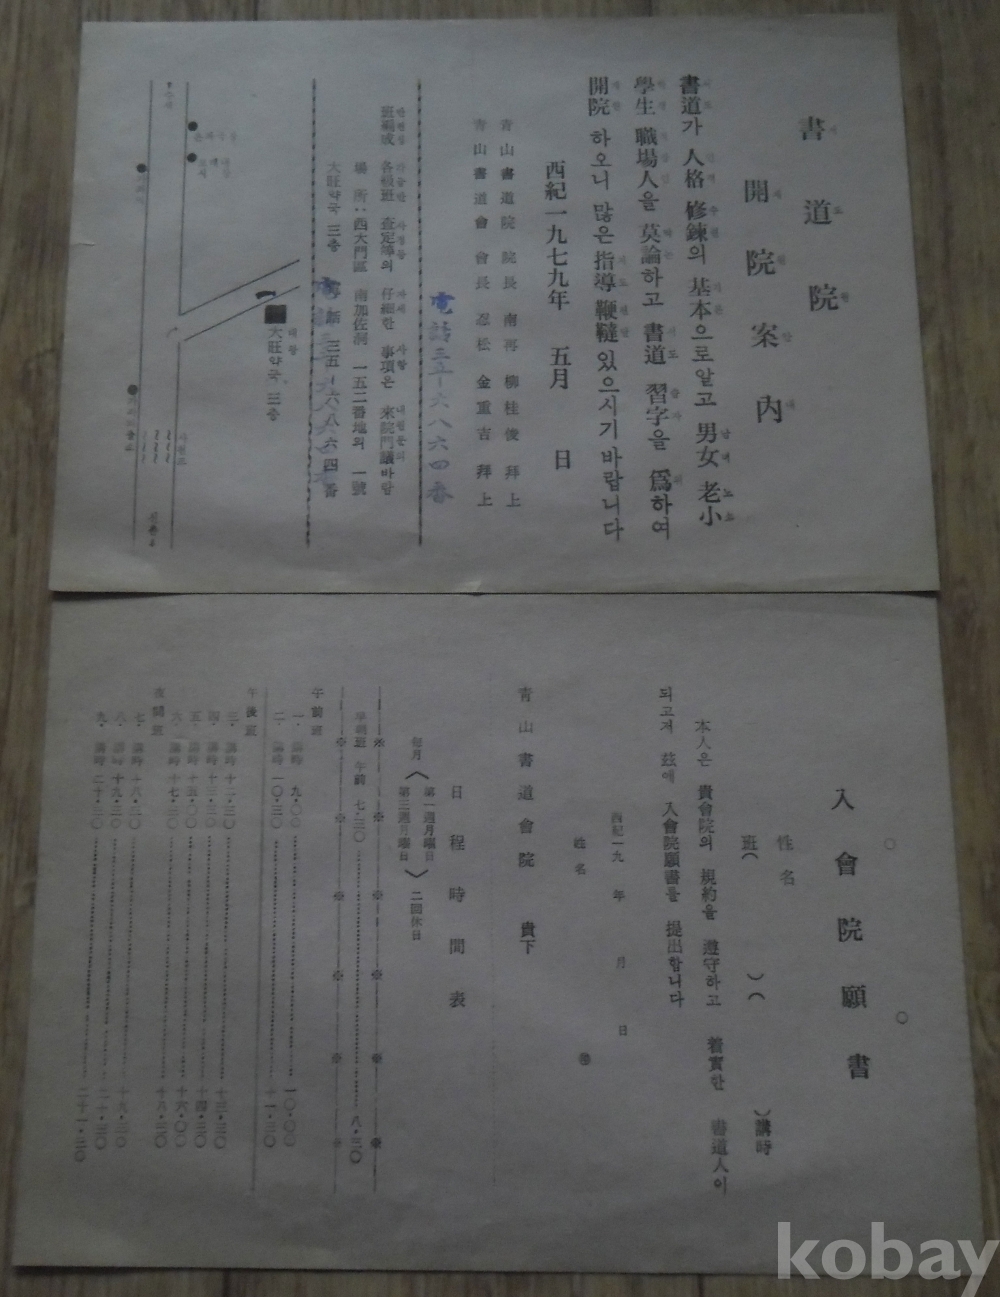 書道院
開院案內
書道가 人格 修鍊의 基本으로알고 男女 老小
學生 職場人을 莫論하고 書道 習字을 爲하여
開院 하오니 많은 指導 鞭韃 있으시기바랍니다
西紀一九七九年 五月 日
靑山書道院 院長 南再 柳桂俊 拜上
靑山書道會 會長 忍松 金重吉 拜上
電話三五-六八六四番
班編成 各級班 査定等의 仔細한 事項은 來院門議바람
場所：西大門區 南加佐洞 一五二番地의 一號
大旺약국 三층
三五-六八六四番
大旺약국 三층
入會院願書
性名
班( ) ( )講時
本人은 貴會院의 規約을 遵守하고 着實한 書道人이
되고저 玆에 入會院願書를 提出합니다
西紀一九 年 月 日
姓名 ㊞
靑山書道會院 貴下
日程時間表
每月 〈第一週月曜日 第三週月曜日〉 二回休日
早朝班 午前 七·三〇 八·三〇
午前班
一· 講時 九·〇〇 一〇·〇〇
二· 講時 一〇·三〇 十一·三〇
午後班
三· 講時 十二·三〇 十三·三〇
四· 講時 十三·三〇 十四·三〇
五· 講時 十五·〇〇 十六·〇〇
六· 講時 十七·三〇 十八·三〇
夜間班
七· 講時 十八·三〇 十九·三〇
八· 講時 十九·三〇 二十·三〇
九· 講時 二十·三〇 二十一·三〇
kobay